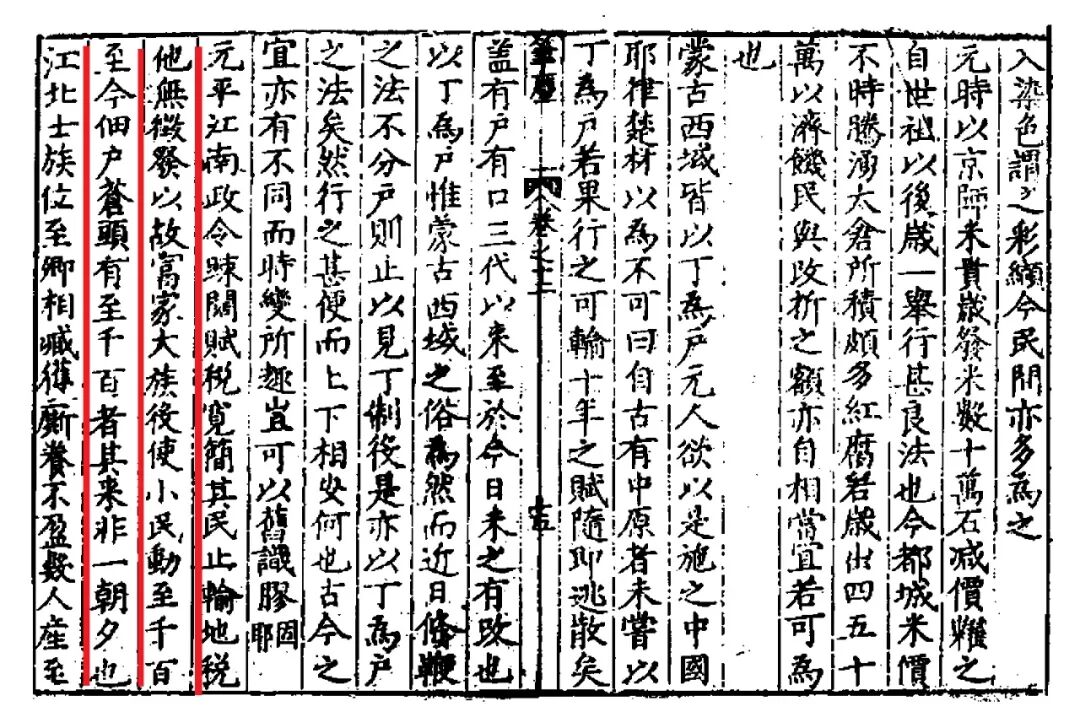 入染色謂之彩纈今民間亦多為之
元時以京師米貴歲發米數十萬石減價糶之
自世祖以後歲一舉行甚良法也今都城米價
不時騰湧太倉所積頗多紅腐若歲出四五十
萬以濟饑民與改折之額亦自相當宜若可為
也
蒙古西域皆以丁為戶元人欲以是施之中國
耶律楚材以為不可曰自古有中原者未嘗以
丁為戶若果行之可輸十年之賦隨即逃散矣
筆麈 卷之十二
盖有戶有口三代以來至於今日未之有改也
以丁為戶惟蒙古西域之俗為然而近日條鞭
之法不分戶則止以見丁制役是亦以丁為戶
之法矣然行之甚便而上下相安何也古今之
宜亦有不同而時變所趣豈可以舊識膠固耶
元平江南政令疎闊賦稅寬簡其民止輸地稅
他無徵發以故富家大族役使小民動至千百
至今佃戶蒼頭有至千百者其来非一朝夕也
江北士族位至卿相臧獲廝養不盈數人産至